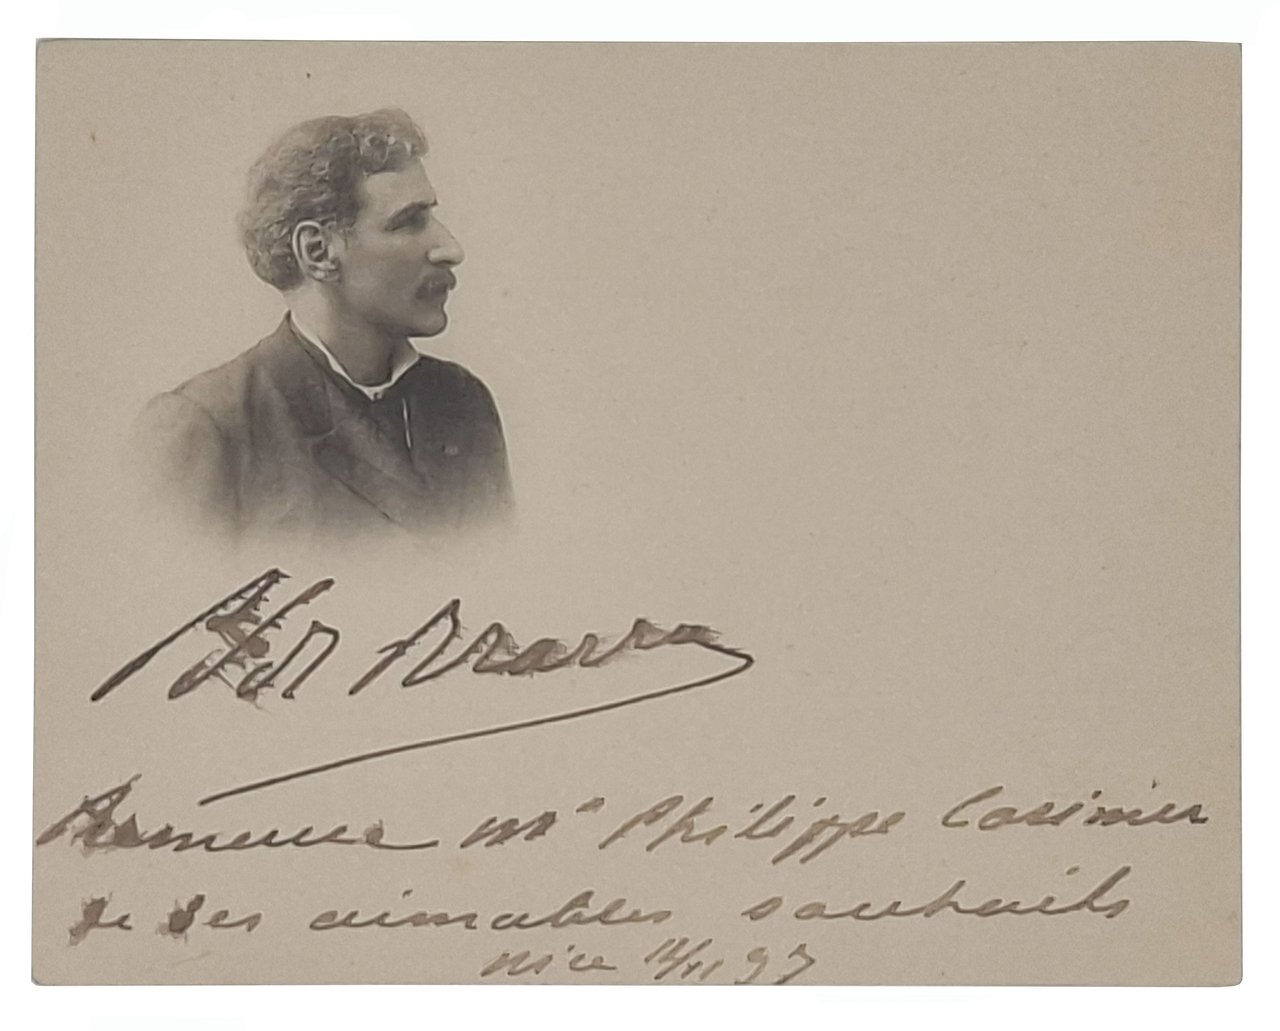 Remercie Mr Philippe Casimir
de ses aimables souhaits
Nice 97